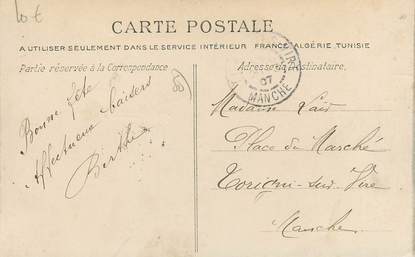 10 €
CARTE POSTALE
A UTILISER SEULEMENT DANS LE SERVICE INTÉRIEUR FRANCE, ALGÉRIE, TUNISIE
Partie réservée à la Correspondance
Adresse du Destinataire.
VIRE
07
MANCHE
Bonne fête
Affectueux baisers
Berthe
Madame
Place du Marché
Torigni-sur-Vire
Manche